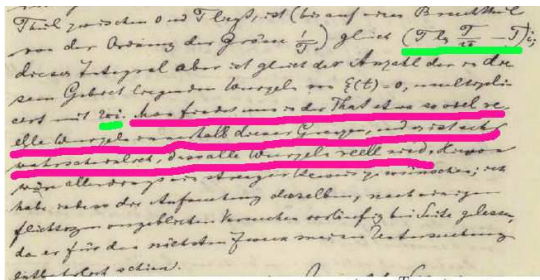 Theil zwischen 0 und T liegt, ist (bis auf einen Bruchtheil
von der Ordnung der Grösse 1/T) gleich (T lg T/2π − T) i;
dieses Integral aber ist gleich der Anzahl der in die
sem Gebiet liegenden Wurzeln von ξ(t) = 0, multiplici
cirt mit 2πi. Man findet nun in der That etwa so viel re
elle Wurzeln innerhalb dieser Grenzen, und es ist sehr
wahrscheinlich, dass alle Wurzeln reell sind. Hiervon
wäre allerdings ein strenger Beweis zu wünschen; ich
habe indess die Aufsuchung desselben nach einigen
flüchtigen vergeblichen Versuchen vorläufig bei Seite gelassen,
da er für den nächsten Zweck meiner Untersuchung
entbehrlich schien.